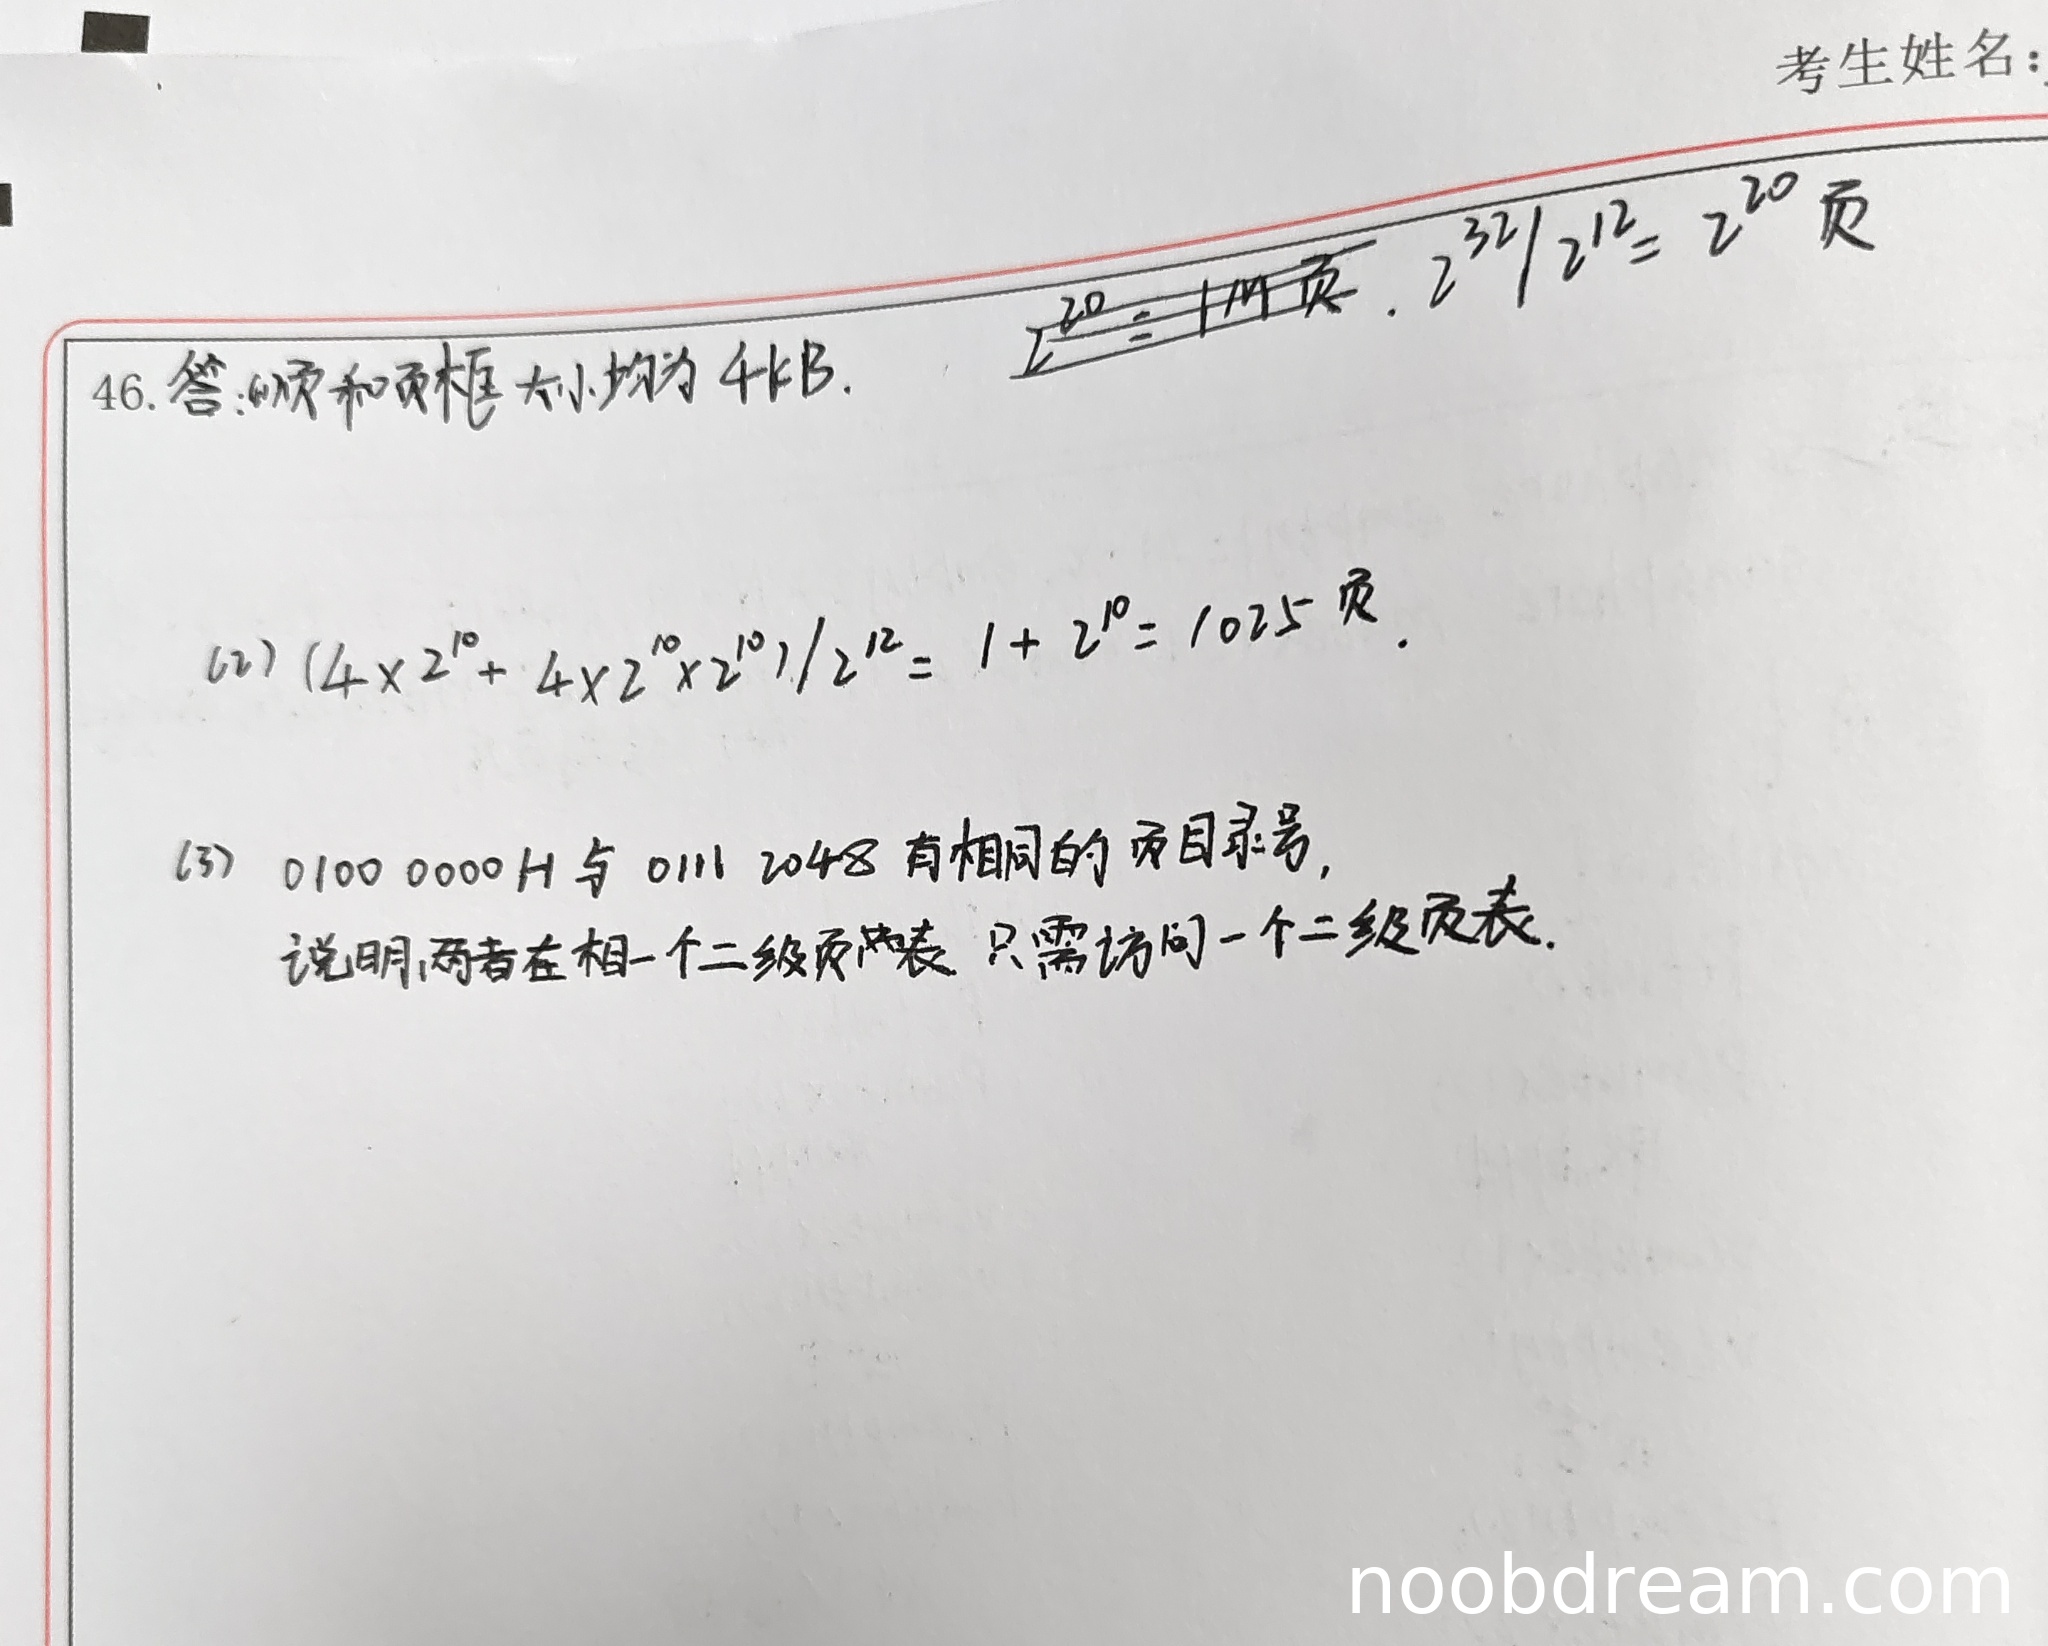 考生姓名:
46. 答:(1)页和页框大小均为4kB. 2^32/2^12=2^20页
(2) (4×2^10+4×2^10×2^10)/2^12=1+2^10=1025页.
(3) 0100 0000H与0111 2048有相同的页目录号,
说明,两者在相一个二级页表 只需访问一个二级页表.
noobdream.com